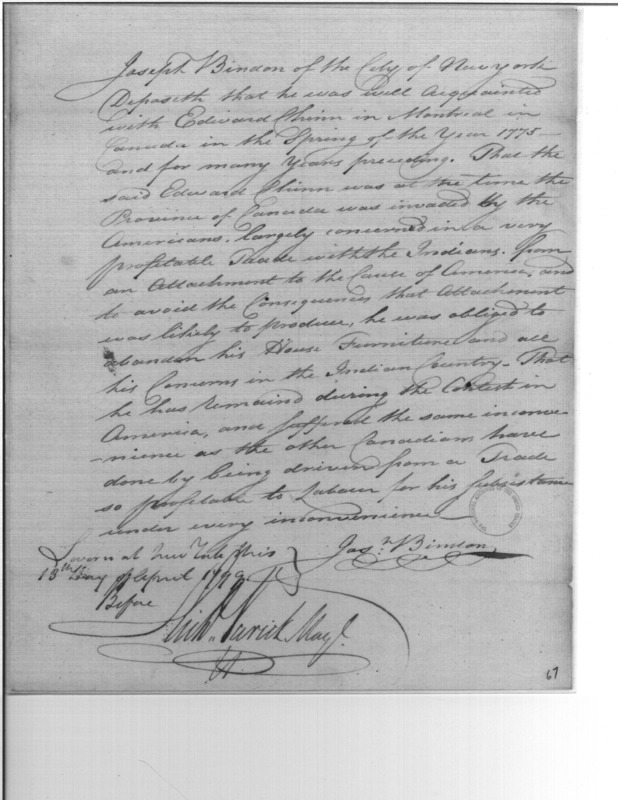 Joseph Bindon of the City of New York
Deposeth that he was well Acquainted
with Edward Chinn in Montreal in
Canada in the Spring of the Year 1775
and for many Years preceding. That the
said Edward Chinn was at the time the
Province of Canada was invaded by the
Americans, largely concerned in a very
profitable Trade with the Indians. from
an Attachment to the Cause of America, and
to avoid the Consequences that Attachment
was likely to produce, he was obliged to
abandon his House Furniture and all
his Concerns in the Indian Country. That
he has remaind during the Contest in
America, and suffered the same inconve
-nience as the other Canadians have
done by being driven from a Trade
so profitable to Labour for his subsistance
under every inconvenience
Josh. Bindon
Sworn at New York this
13th Day of April
Before
Richd. Varick May
67